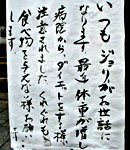 いつもジョリがお世話に
なります。最近体重が増し
病院からダイエットをする様、
注意されました。くれぐれも、
食べ物を与えない様、お願い
します。